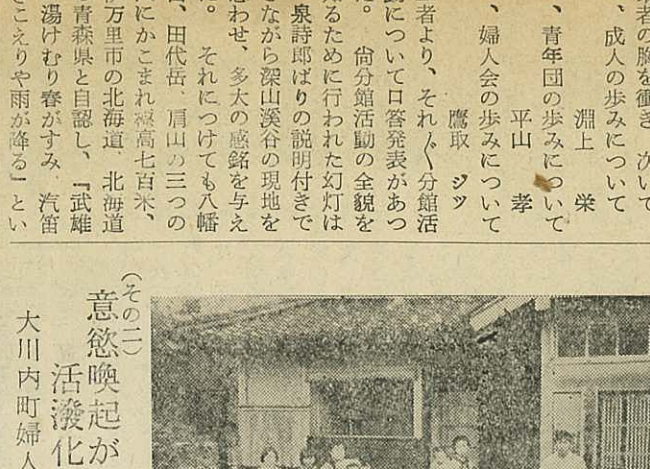 者の胸を衝き、次いで
、成人の歩みについて
淵上　栄
、青年団の歩みについて
平山　孝
、婦人会の歩みについて
鷹取　ジツ
者より、それ〴〵分館活
動について口答発表があつ
た。　尙分館活動の全貌を
知るために行われた幻灯は
泉詩郎ばりの説明付きで
さながら深山溪谷の現地を
思わせ、多大の感銘を与え
た。　それにつけても八幡
岳、田代岳、眉山の三つの
にかこまれ標高七百米、
伊万里市の北海道、北海道
青森県と自認し、『武雄
湯けむり春がすみ、汽笛
きこえりや雨が降る』とい
（その二）
意慾喚起が
活潑化
大川内町婦人